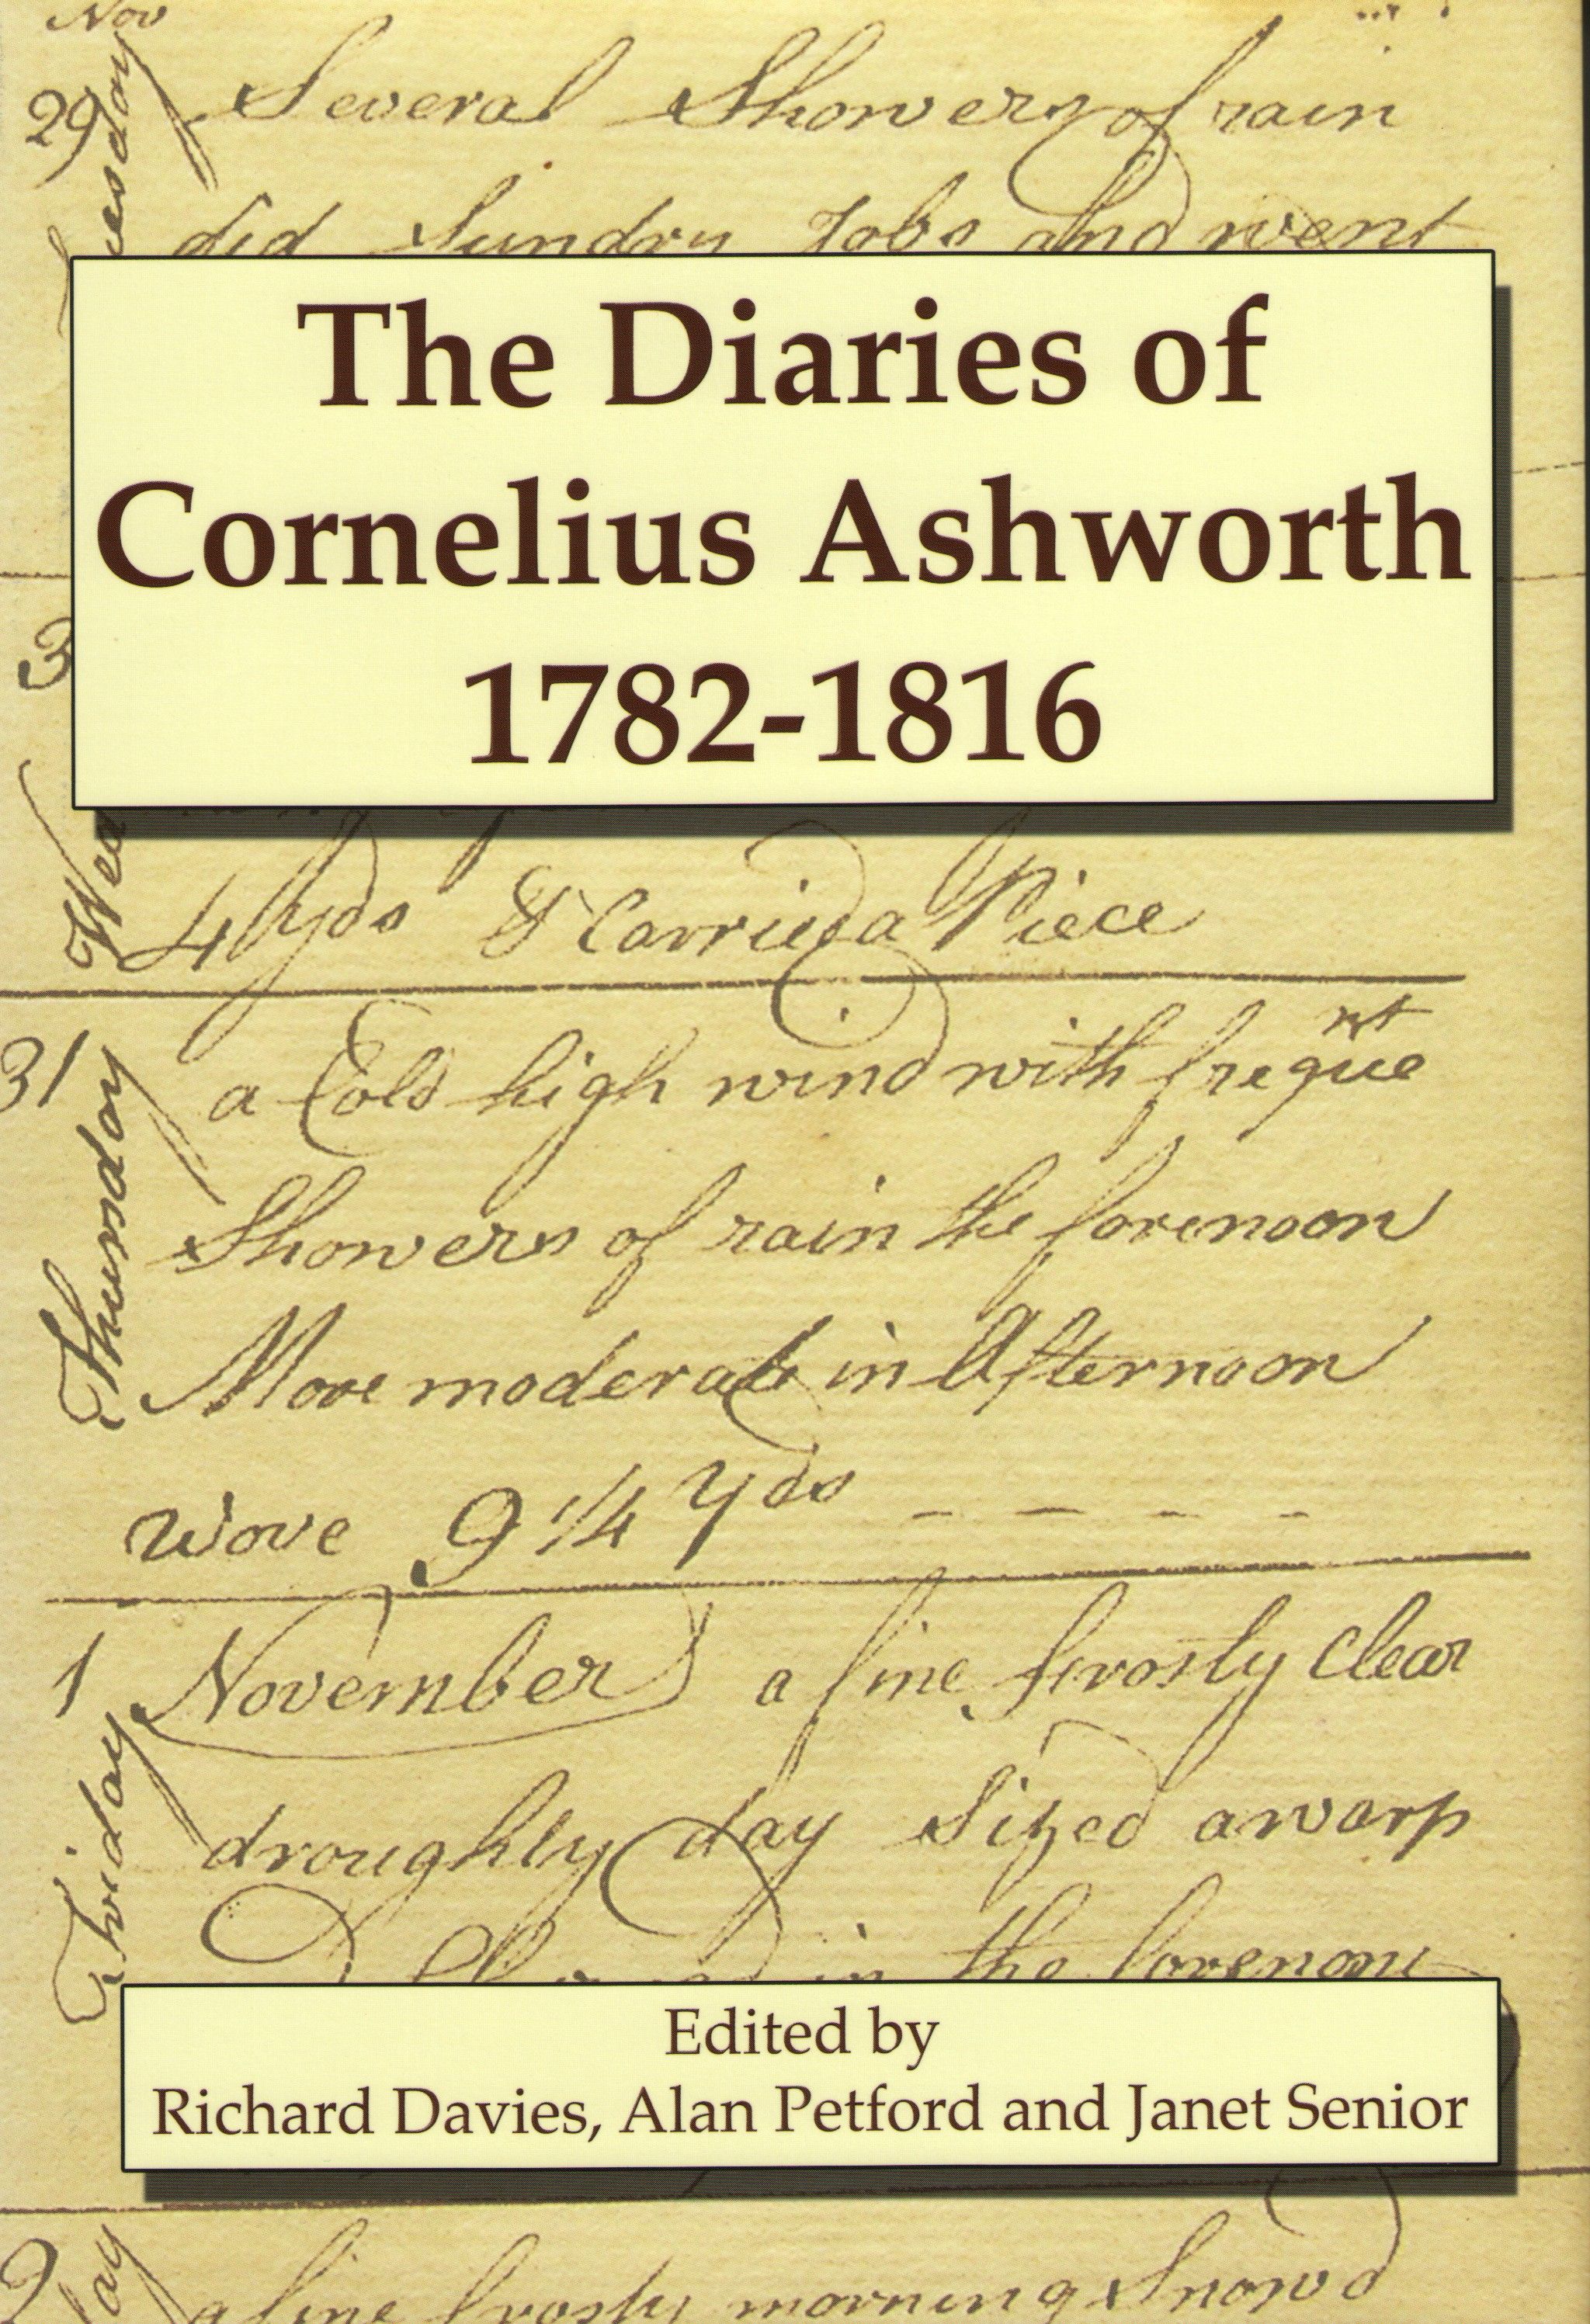 Nov
29 Tuesday Several Showers of rain
did Sundry Jobs and went
The Diaries of
Cornelius Ashworth
1782-1816
3
Wed
4 yds & Carried a Piece
31 Thursday a Cold high wind with freque nt
Showers of rain the forenoon
More moderate in Afternoon
wove 9 1/4 Yds - - - -
1 Friday November a fine frosty Clear
droughty day Sized a warp
in the forenoon
Edited by
Richard Davies, Alan Petford and Janet Senior
2 day a fine frosty morning Snow'd